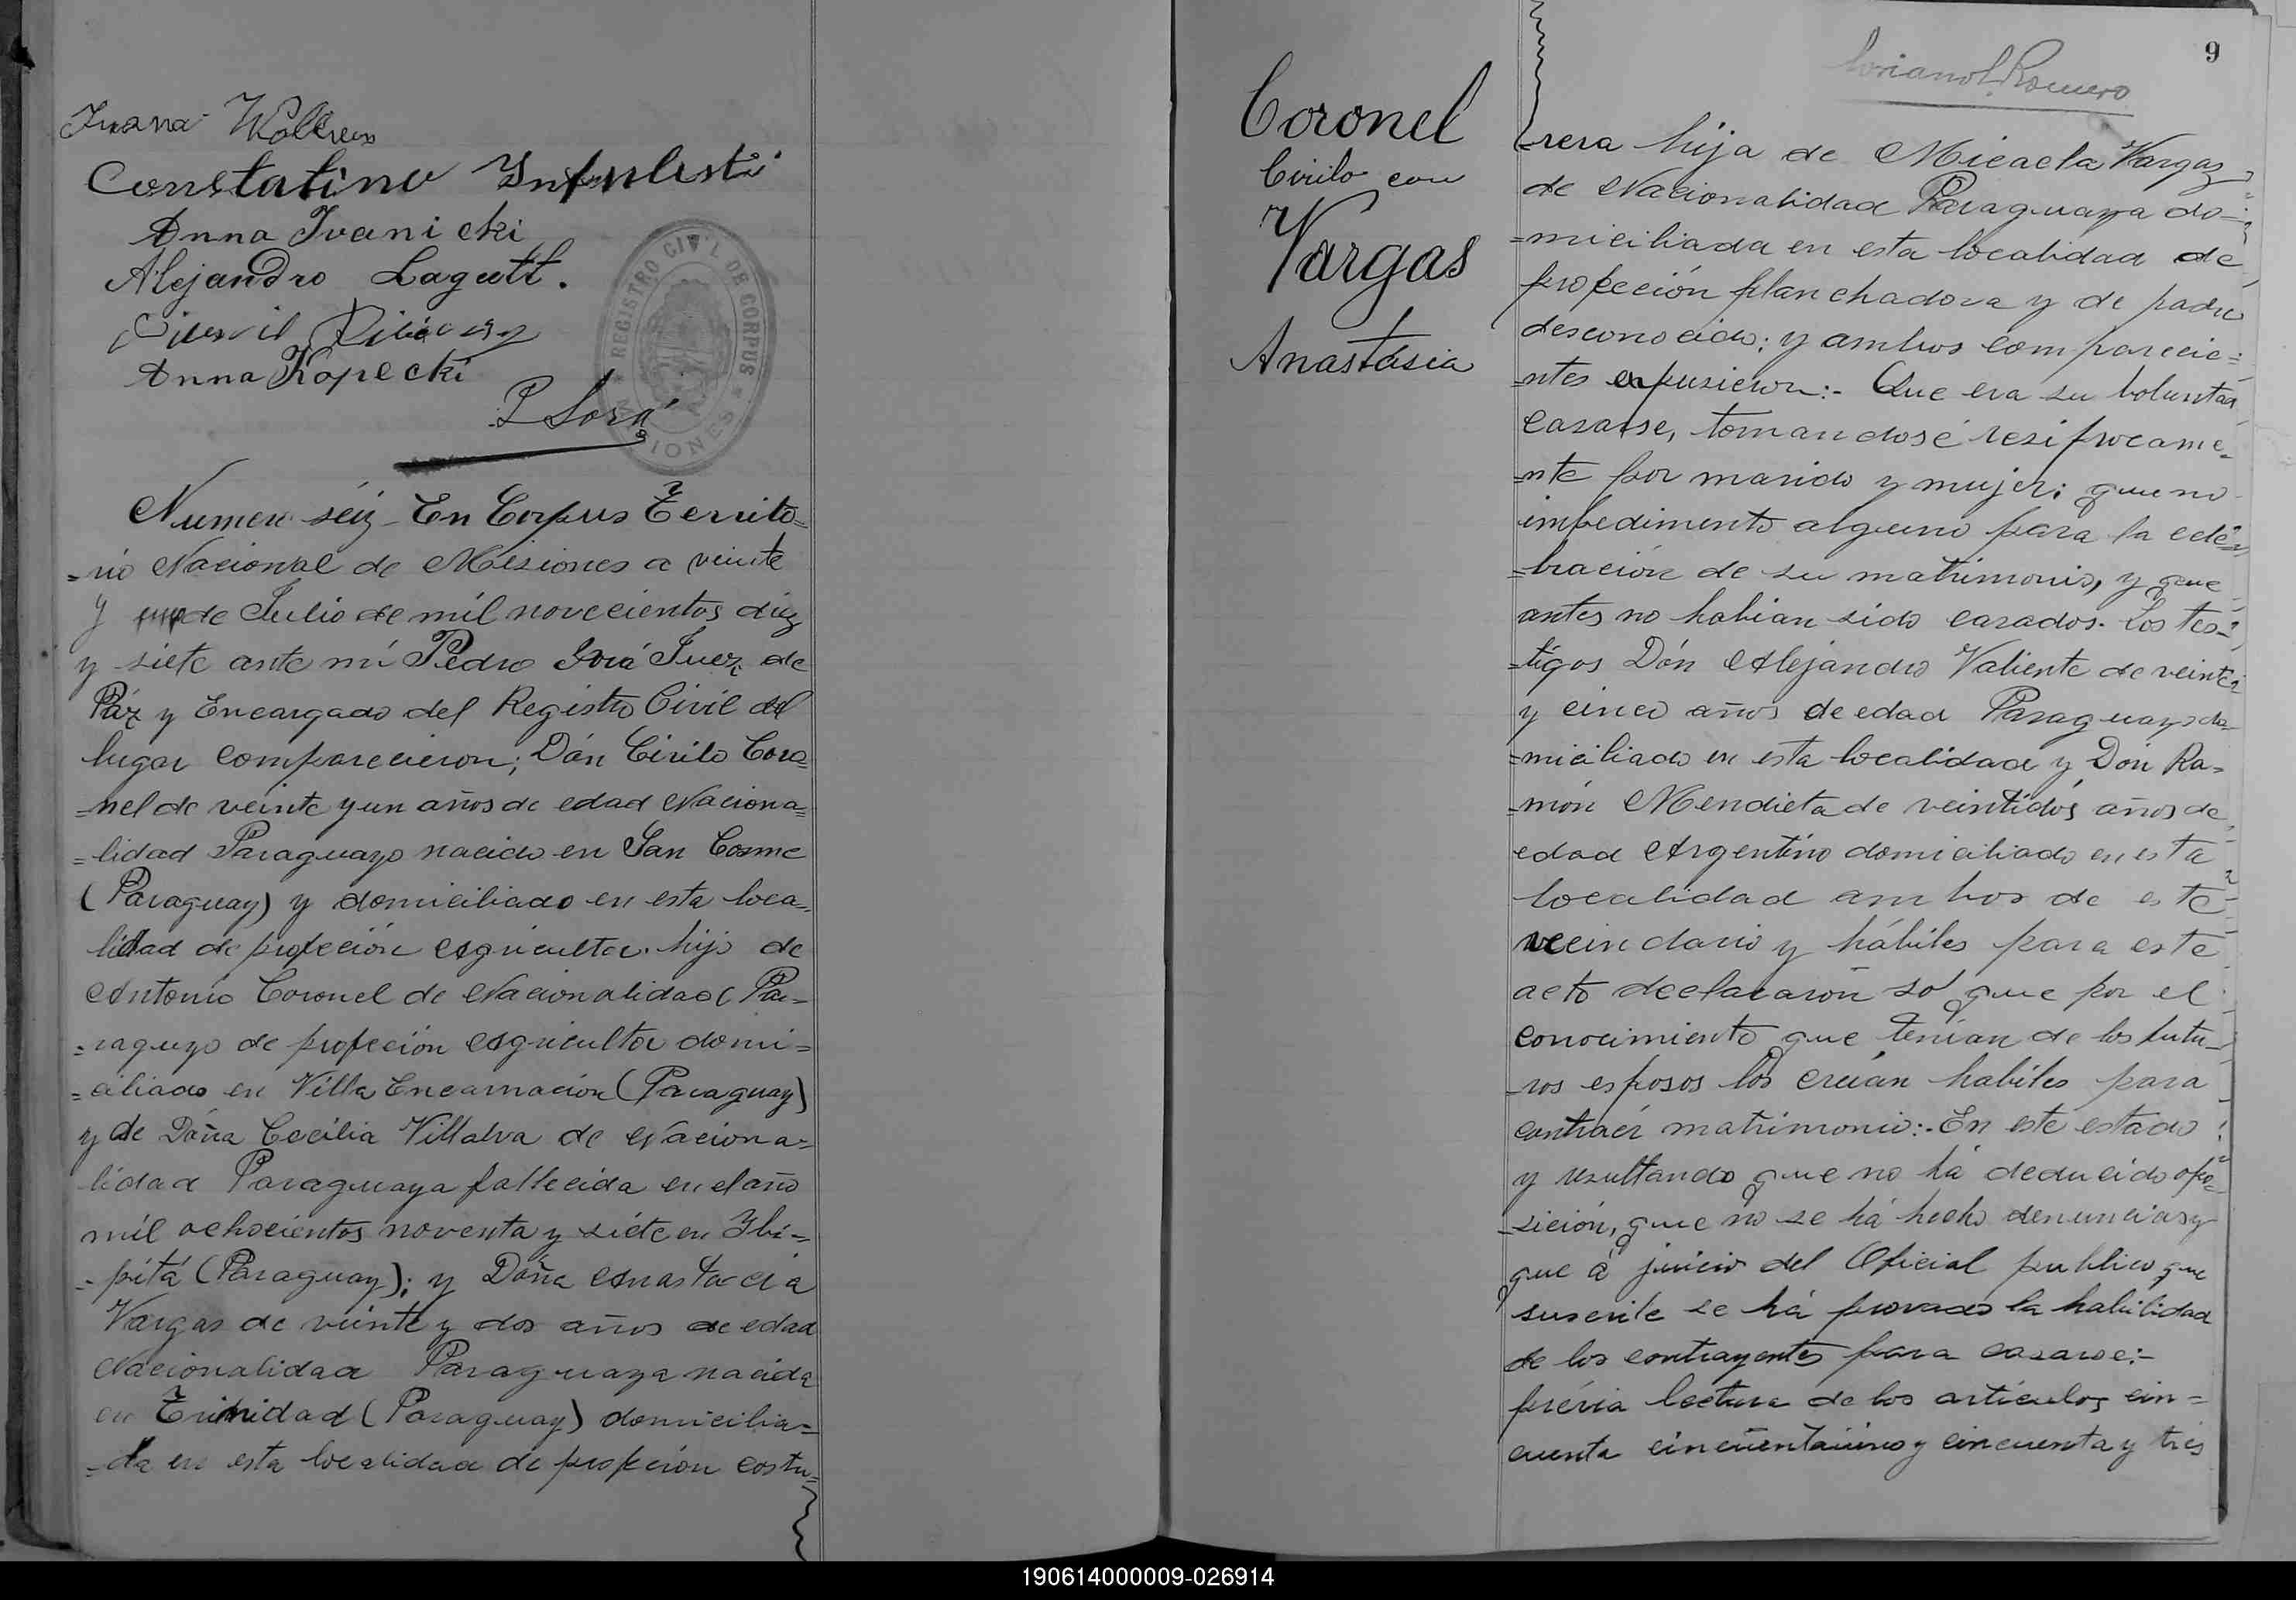 Juana
Constatino
Anna Ivanicki
Alejandro Lagutt.
Anna Kopecki
P Soria
REGISTRO CIVIL DE CORPUS
MISIONES
Numero séiz En Corpus Territo=
=rio Nacional de Misiones a veinte
y de Julio de mil novecientos diez
y siete ante mi Pedro Soriá Juez de
Páz y Encargado del Registro Civil del
lugar comparecieron; Dón Cirilo Coro=
=nel de veinte y un años de edad Naciona=
=lidad Paraguayo nacido en San Cosme
(Paraguay) y domiciliado en esta loca=
lidad de profeción agricultor. hijo de
Antonio Coronel de Nacionalidad Pa=
=raguyo de profeción agricultor domi=
=ciliado en Villa Encarnación (Paraguay)
y de Doña Cecilia Villalva de Naciona=
lidad Paraguaya fallecida en el año
mil ochocientos noventa y siéte en Ybi=
=pitá (Paraguay); y Doña Anastacia
Vargas de veinte y dos años de edad
Nacionalidad Paraguaya nacida
en Trinidad (Paraguay) domicilia=
=da en esta localidad de profeción costu=
9
Romero
Coronel
Cirilo con
Vargas
Anastásia
=rera hija de Micaela Vargas
de Nacionalidad Paraguaya do=
=miciliada en esta localidad de
profeción planchadora y de padre
desconocido; y ambos comparecie=
=ntes expusieron:- Que era su boluntad
casarse, tomandosé resiprocame=
=nte por marido y mujer; que no
impedimento alguno para la cele=
=bración de su matrimonio, y que
antes no habian sido casados. Los tes=
=tigos Dón Alejandro Valiente de veinte
y cinco años de edad Paraguayo do=
=miciliado en esta localidad y Don Ra=
=món Mendieta de veintidós años de
edad Argentino domiciliado en esta
localidad ambos de este
vecindario y hábiles para este
acto declararon so que por el
conocimiento que tenian de los futu=
=ros esposos los creian habiles para
contraér matrimonio:- En este estado
y resultando que no há deducido opo=
=sición, que no se há hecho denuncias y
que á juicio del Oficial publico que
suscrite se há provado la habilidad
de los contrayentes para casarse:-
prévia lectura de los articulos cin=
cuenta cincuentaiuno y cincuenta y trés
190614000009-026914